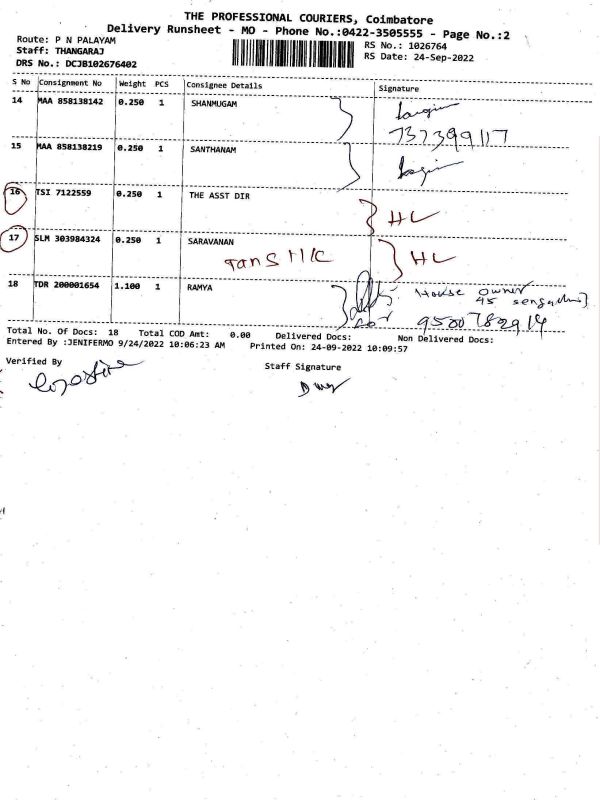 THE PROFESSIONAL COURIERS, Coimbatore
Delivery Runsheet - MO - Phone No.:0422-3505555 - Page No.:2
Route: P N PALAYAM
Staff: THANGARAJ
DRS No.: DCJB102676402
RS No.: 1026764
RS Date: 24-Sep-2022
S No Consignment No Weight PCS Consignee Details Signature
14 MAA 858138142 0.250 1 SHANMUGAM
737399117
15 MAA 858138219 0.250 1 SANTHANAM
16 TSI 7122559 0.250 1 THE ASST DIR
HL
17 SLM 303984324 0.250 1 SARAVANAN HL
18 TDR 200001654 1.100 1 RAMYA House owner
45
for 9500782914
Total No. Of Docs: 18 Total COD Amt: 0.00 Delivered Docs: Non Delivered Docs:
Entered By :JENIFERMO 9/24/2022 10:06:23 AM Printed On: 24-09-2022 10:09:57
Verified By
Staff Signature